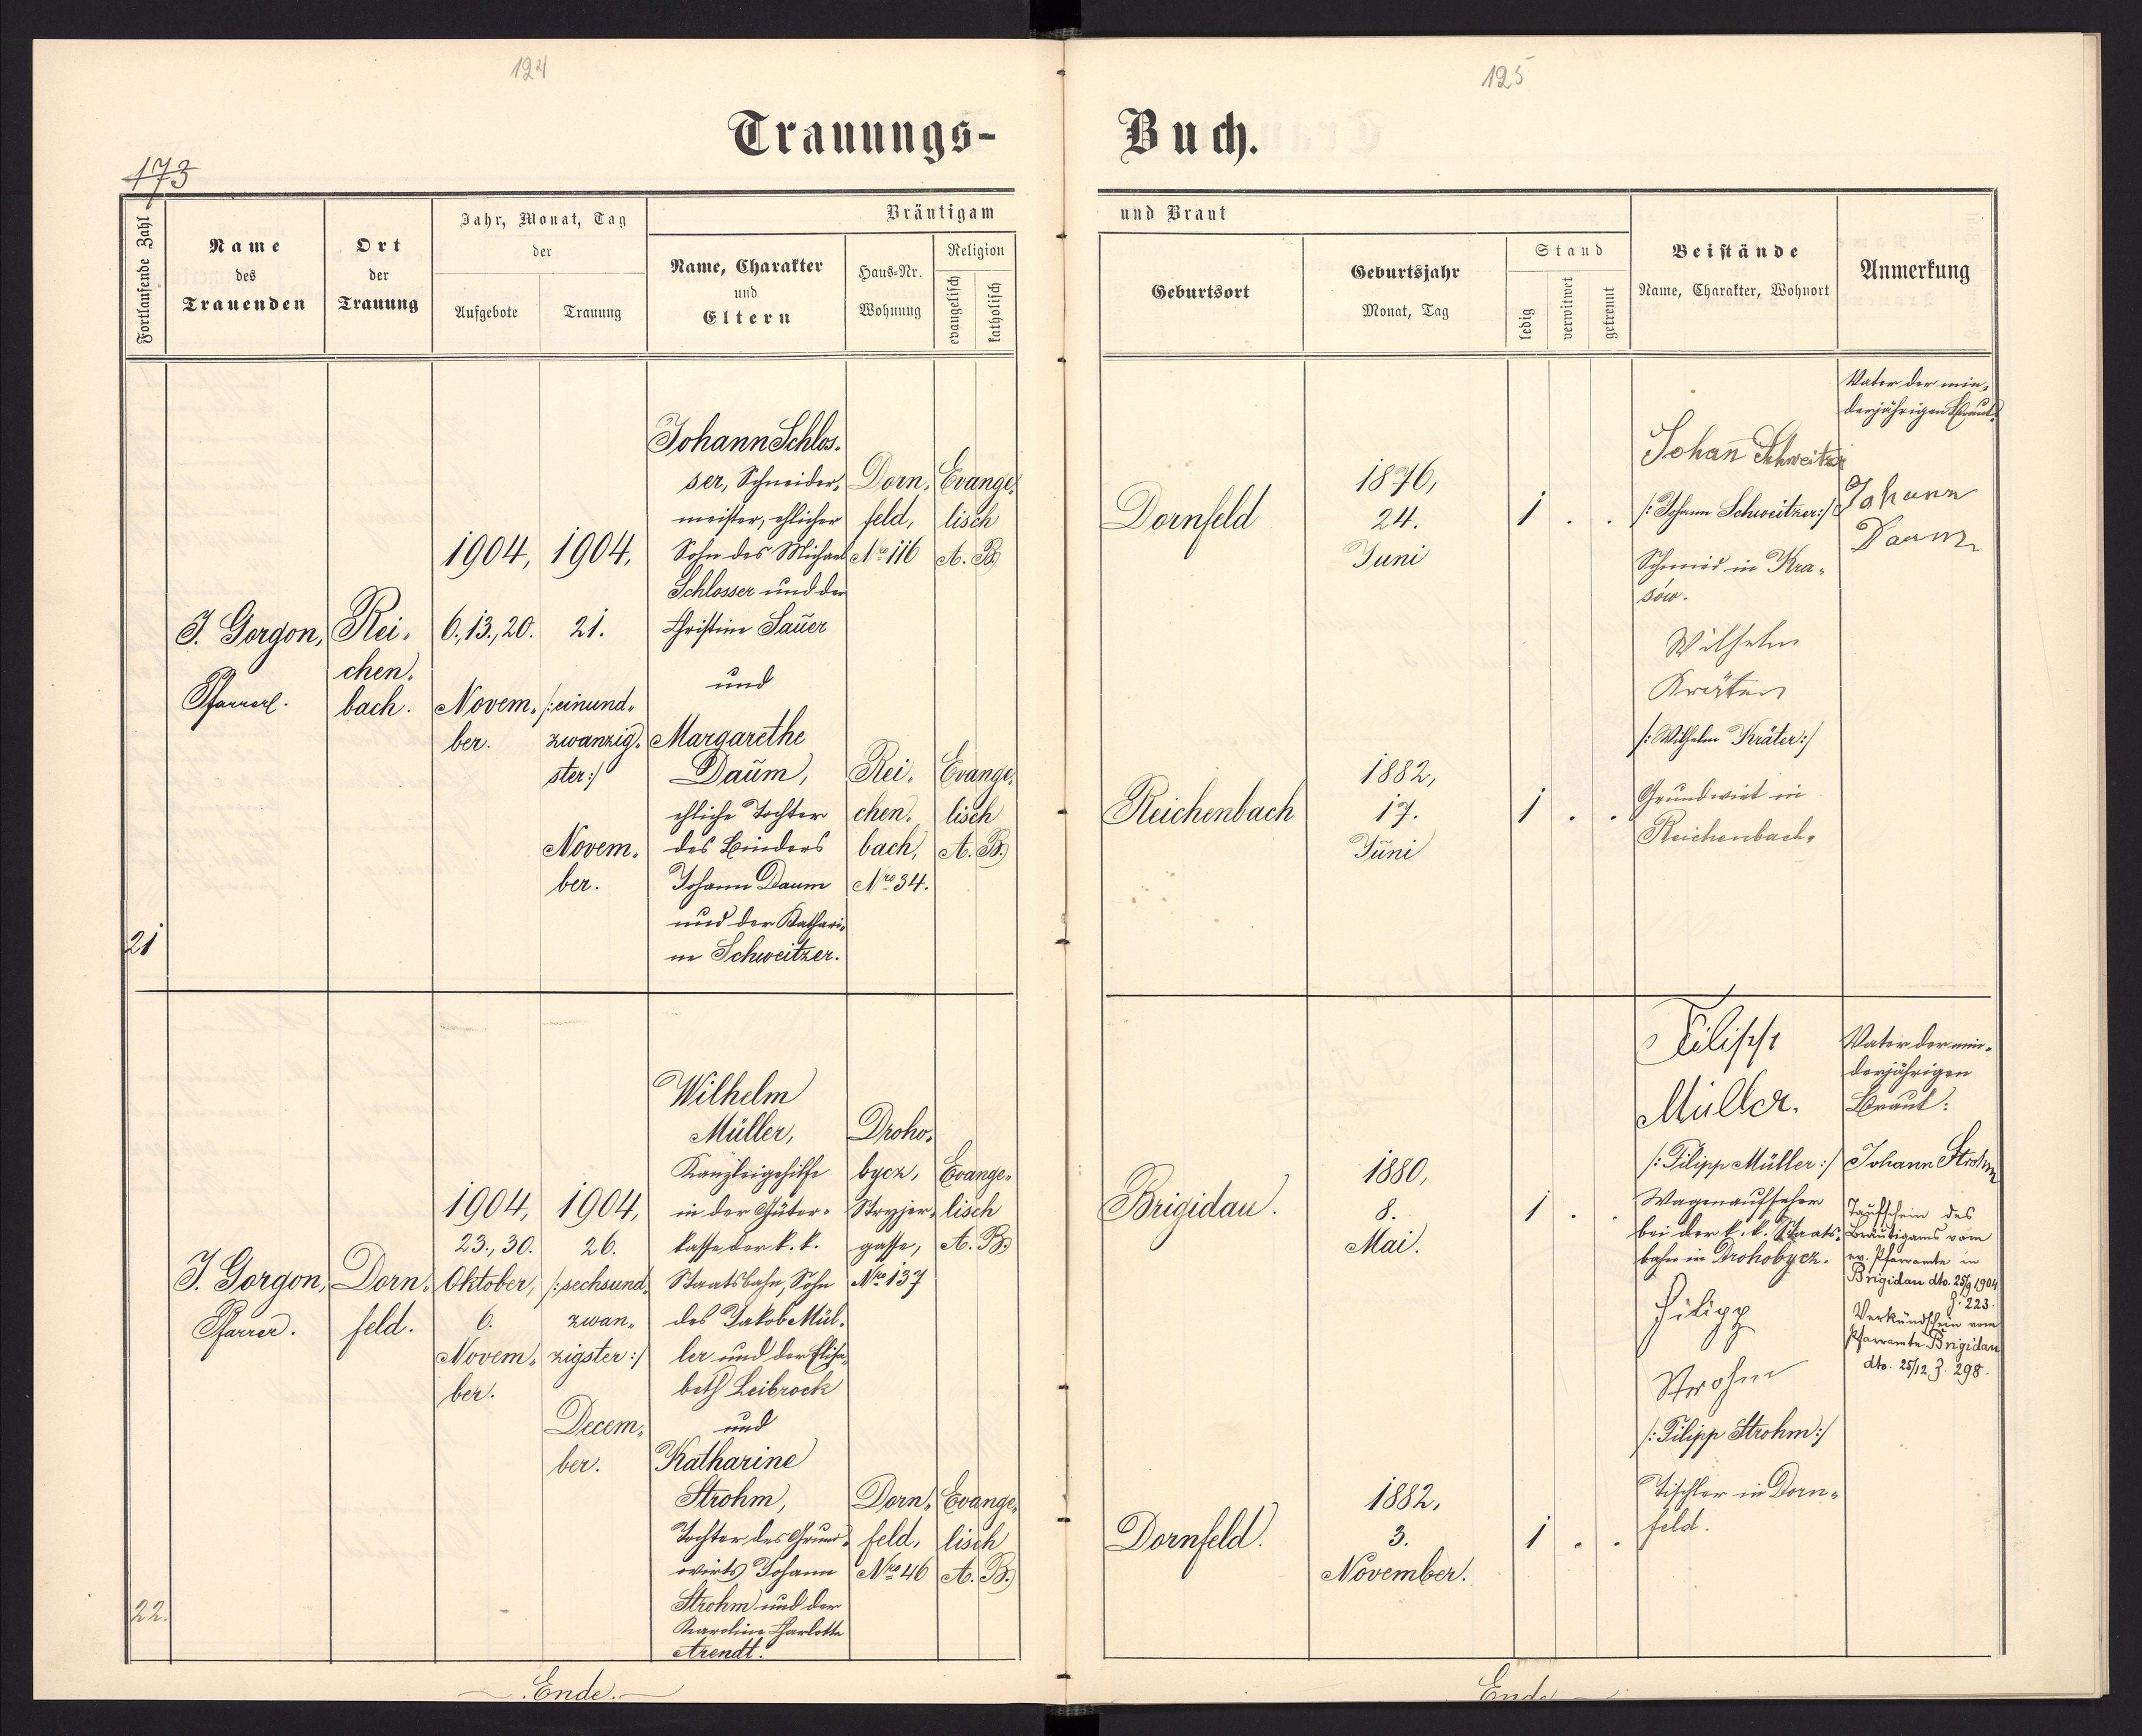 124
125
Trauungs-
Buch.
173
Fortlaufende Zahl
Name
des
Trauenden
Ort
der
Trauung
Jahr, Monat, Tag
der
Aufgebote
Trauung
Bräutigam
Name, Charakter
und
Eltern
Haus-Nr.
Wohnung
Religion
evangelisch
katholisch
und Braut
Geburtsort
Geburtsjahr
Monat, Tag
Stand
ledig
verwitwet
getrennt
Beistände
Name, Charakter, Wohnort
Anmerkung
21
J. Gorgon,
Pfarrer.
Rei-
chen-
bach.
1904,
6., 13., 20.
Novem-
ber.
1904,
21.
/:einund-
zwanzig-
ster:/
Novem-
ber.
Johann Schlos-
ser, Schneider-
meister, ehlicher
Sohn des Michael
Schlosser und der
Christine Sauer
und
Margarethe
Daum,
ehliche Tochter
des Binders
Johann Daum
und der Kathari-
ne Schweitzer.
Dorn-
feld,
Nro 116
Rei-
chen-
bach,
Nro 34.
Evange-
lisch
A. B.
Evange-
lisch
A. B.
Dornfeld
Reichenbach
1876,
24.
Juni
1882,
17.
Juni
1 . .
1 . .
Johan̄ Schweitzer
/: Johann Schweitzer:/
Schmied in Kra-
sów.
Wilhelm
Kräter
/: Wilhelm Kräter:/
Grundwirt in
Reichenbach.
Vater der min-
derjährigen Braut:
Johann
Daum
22.
J. Gorgon,
Pfarrer.
Dorn-
feld.
1904,
23., 30.
Oktober,
6.
Novem-
ber.
1904,
26.
/:sechsund-
zwan-
zigster:/
Decem-
ber.
Wilhelm
Müller,
Kanzleigehilfe
in der Güter-
kasse der k. k.
Staatsbahn, Sohn
des Jakob Mül-
ler und der Elisa-
beth Leibrock
und
Katharine
Strohm,
Tochter des Grund-
wirts Johann
Strohm und der
Karoline Charlotte
Arendt.
Droho-
bycz,
Stryjer-
gasse,
Nro 137
Dorn-
feld,
Nro 46
Evange-
lisch
A. B.
Evange-
lisch
A. B.
Brigidau.
Dornfeld.
1880,
8.
Mai.
1882,
3.
November.
1 . .
1 . .
Filipp
Müller.
/: Filipp Müller :/
Wagenaufseher
bei der k. k. Staats-
bahn in Drohobycz.
Filipp
Strohm
/: Filipp Strohm:/
Tischler in Dorn-
feld.
Vater der min-
derjährigen
Braut:
Johann Strohm
Taufschein des
Bräutigams vom
ev. Pfarramte in
Brigidau dto. 25/9 1904
Z. 223.
Verkündschein vom
Pfarramte Brigidau
dto. 25/12 Z. 298.
Ende.
Ende